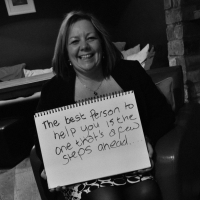 The best person to
help you is the
one that's a few
steps ahead.